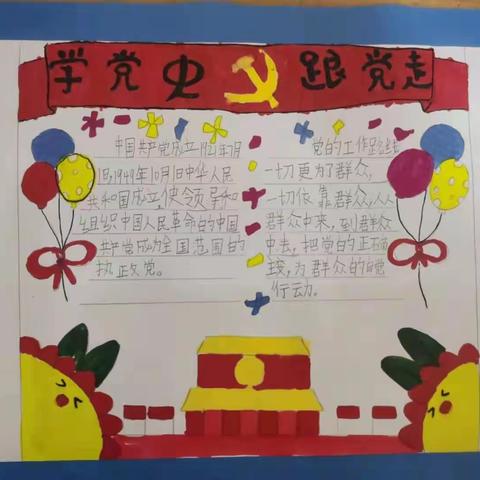 学党史 跟党走
中国共产党成立1921年7月
1日,1949年10月1日中华人民
共和国成立,使领导和
组织中国人民革命的中国
共产党成为全国范围的
执政党。
党的工作路线
一切更为了群众,
一切依靠群众,从
群众中来,到群众
中去,把党的正确
主张,为群众的自觉
行动。